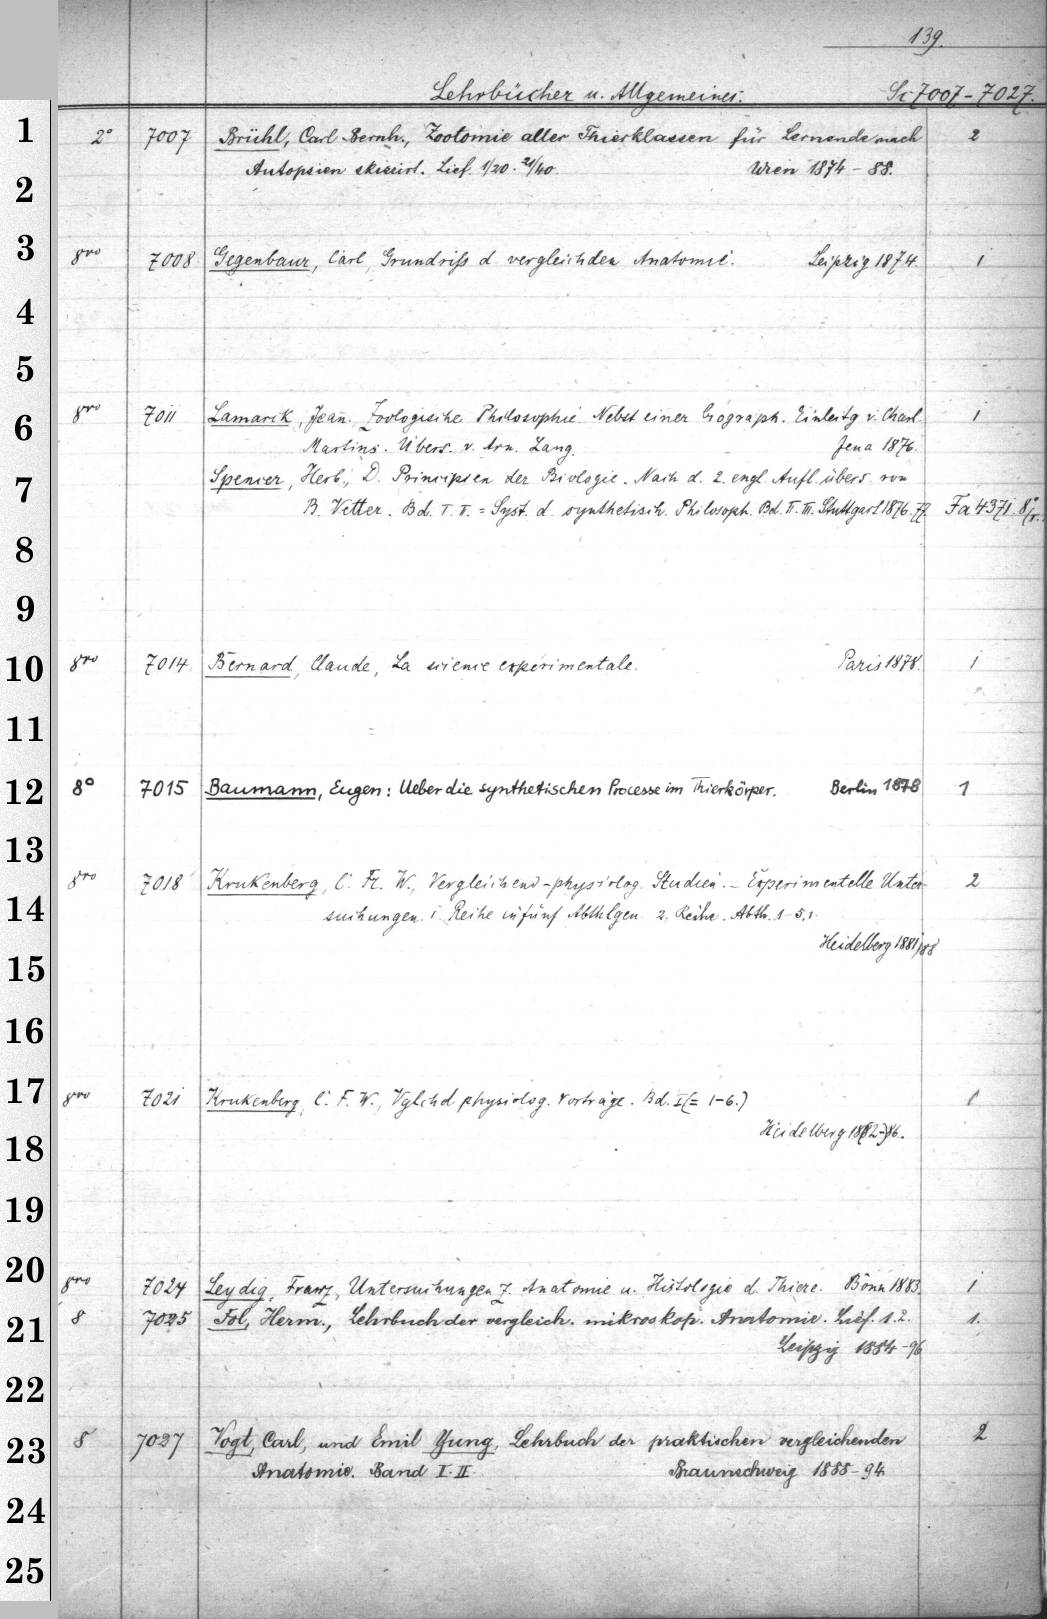 139.
Lehrbücher u. Allgemeines. 7007-7027.
1 2° 7007 Brühl, Carl Bernh., Zootomie aller Thierklassen für Lernende nach 2
Autopsien skizzirt. Lief. 1/20. 21/40. Wien 1874-88.
2
3 8vo 7008 Gegenbaur, Carl, Grundriss d. vergleichden Anatomie. Leipzig 1874. 1
4
5
6 8vo 7011 Lamarck, Jean, Zoologische Philosophie. Nebst einer biograph. Einleitg v. Charl. 1
Martins. Übers. v. Arn. Lang. Jena 1876.
7 Spencer, Herb., D. Principien der Biologie. Nach d. 2. engl. Aufl. übers. von
B. Vetter. Bd. I. II. = Syst. d. synthetisch. Philosoph. Bd. II. III. Stuttgart 1876.77. Fa 4371 8°
8
9
10 8vo 7014 Bernard, Claude, La science expérimentale. Paris 1878. 1
11
12 8° 7015 Baumann, Eugen: Ueber die synthetischen Processe im Thierkörper. Berlin 1878 1
13
8vo 7018 Krukenberg, C. Fr. W., Vergleichend-physiolog. Studien. - Experimentelle Unter- 2
14 suchungen. 1. Reihe in fünf Abthlgen. 2. Reihe. Abth. 1-5,1.
Heidelberg 1881/88
15
16
17 8vo 7021 Krukenberg, C. F. W., Vglchd physiolog. Vorträge. Bd. I (= 1-6.) 1
Heidelberg 18(82-)86.
18
19
20 8vo 7024 Leydig, Franz, Untersuchungen z. Anatomie u. Histologie d. Thiere. Bonn 1883. 1
21 8 7025 Fol, Herm., Lehrbuch der vergleich. mikroskop. Anatomie. Lief. 1.2. 1.
Leipzig 1884-96
22
23 8 7027 Vogt, Carl, und Emil Yung, Lehrbuch der praktischen vergleichenden 2
Anatomie. Band I. II. Braunschweig 1888-94.
24
25